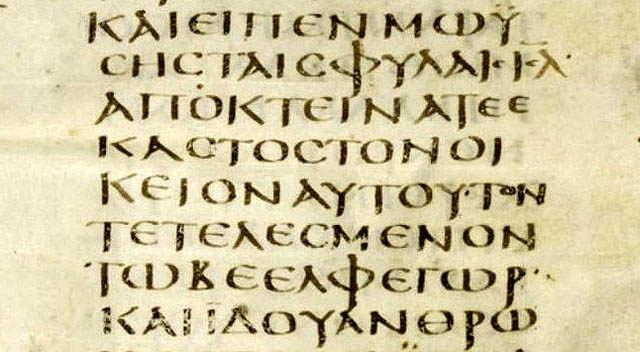 ΚΑΙΕΙΠΕΝΜΩΥ
ϹΗϹΤΑΙϹΦΥΛΑΙϹΙΗΛ
ΑΠΟΚΤΕΙΝΑΤΕΕ
ΚΑϹΤΟϹΤΟΝΟΙ
ΚΕΙΟΝΑΥΤΟΥ·ΤΟΝ
ΤΕΤΕΛΕϹΜΕΝΟΝ
ΤΩΒΕΕΛΦΕΓΩΡ·
ΚΑΙΙΔΟΥΑΝΘΡΩ